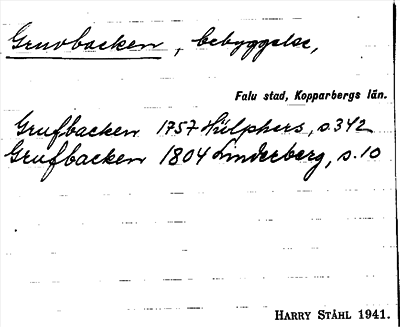 Gruvbacken, bebyggelse,
Falu stad, Kopparbergs län.
Grufbacken 1757 Hülphers, s. 342
Grufbacken 1804 Linderberg, s. 10
HARRY STÅHL 1941.